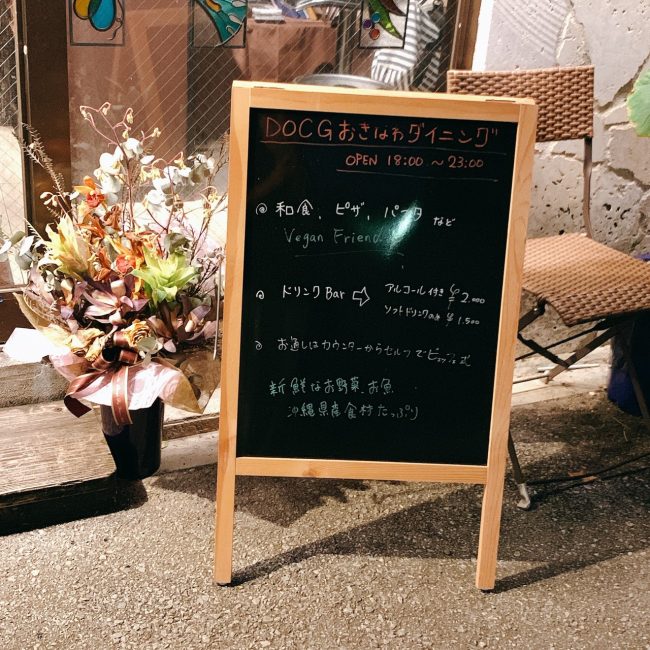 DOCGおきなわダイニング
OPEN 18:00 ~ 23:00
◎ 和食、ピザ、パスタ など
Vegan Friendly
◎ ドリンクBar ⇨ アルコール付き ¥2.000
ソフトドリンクのみ ¥1.500
◎ お通しはカウンターからセルフでビュッフェ式
新鮮なお野菜、お魚
沖縄県産食材たっぷり